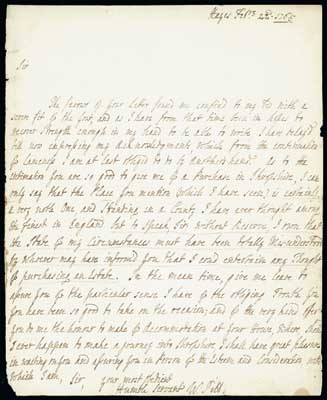 Hayes Feb.ry 22d. 1765
Sir
The favour of your Letter found me confined to my Bed with a
severe fit of the Gout, and as I have from that time been in hopes to
recover Strength enough in my hand to be able to write, I have delay'd
till now expressing my Acknowledgments, which from the continuation
of Lameness I am at last obliged to by another hand. As to the
intimation you are so good to give me of a Purchase in Shropshire, I can
only say that the Place you mention (which I have seen) is certainly
a very noble One, and Standing in a County I have ever thought among
the finest in England, but to Speak, Sir, without Reserve, I own that
the State of my Circumstances must have been totally Misunderstood
by whoever may have informed you that I could entertain any Thought
of purchasing an Estate. In the mean time, give me leave to
assure you of the particular sense I have of the obliging Trouble you
have been so good to take on the occasion, and of the very kind offer
you do me the honour to make of Accommodation at your House, where, shou'd
I ever happen to make a journey into Shropshire I shall have great pleasure
in waiting on you and assuring you in Person of the Esteem and Consideration with
which I am, Sir, your most obedient
Humble Servant W Pitt